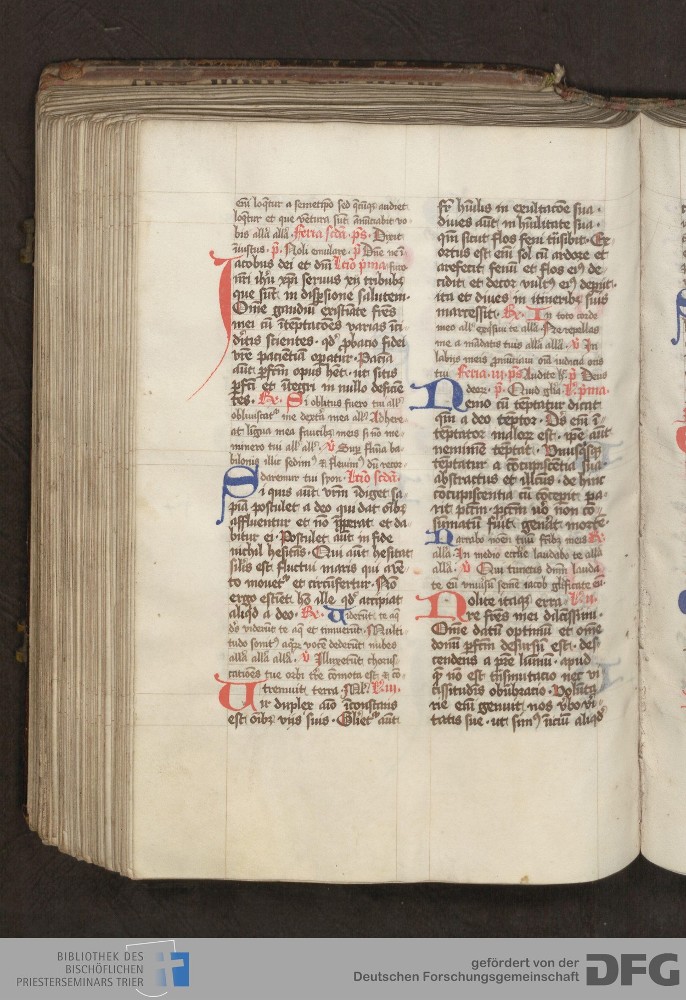 em̄ loq̄tur a semetip̄o sed q̄cūq; audiet
loq̄tur et que ventura sūt an̄nūciabit vo
bis all'a all'a feria scd̄a p̄s Dixit
iustus p̄ Noli emulare p̄ Dn̄e ne ī
Iacobus dei et dn̄i Lc̄io p̄ma furo
nr̄i ih'u xp̄i seruus xii tribubꝫ
que sūt in disp̄sione salutem
Om̄e gaudiū existiate fr̄es
mei cū ītēptac̄oes varias īci
d'itis scientes qd' ꝓbacio fidei
vr̄e pacienciā oꝑatur Paciā
aut ꝑf̄cm opus h̄et ut sitis
ꝑfc̄i et ītegri in nullo deficiē
tes R̄. Si oblitus fuero tui all'
obliuiscat' me dext̄a mea all' Adhere
at ligua mea faucibꝫ meis si nō me
minero tui all' all' v Sup flu̅ia ba
bilonis illic sedim' et fleuim' dū recor
daremur tui syon Lc̄io scd̄a
Si quis aut vr̄m īdiget sa
piā postulet a deo qui dat oībꝫ
affluentur et nō īꝓperat et da
bitur ei Postulet aut in fide
nichil hesitās Qui aut hesitat
silis est fluctui maris qui a vē
to mouet' et circūfertur Nō
ergo estiet hō ille qd' accipiat
aliq̄d a deo R̄. Viderūt te aq̄
d's viderūt te aq̄ et timuerūt Multi
tudo sonit' aq̄ꝝ vocē dederūt nubes
all'a all'a all'a v Illuxerūt chorus
cac̄ioēs tue orbi t're c̄omota est et cō
tremuit terra L. iii.
Vir duplex aīo īconstans
est oībꝫ viis suis Gl'iet' aut
fr̄ hūilis in exultac̄oe sua
diues aut in hūilitate sua
qm̄ sicut flos feni t̄nsibit Ex
ortus est em̄ sol cū ardore et
arefecit fenū et flos ei' de
cidit et decor vult' ei' deꝑijt
ita et diues in itineribꝫ suis
marcessit R̄. In toto corde
meo all' exq̄siui te all'a Ne repellas
me a mādatis tuis all'a all'a v In
labijs meis ꝓnūciaui oīa iudicia oris
tui Feria iii p̄s Audite p̄ Deus
deoꝝ p̄ Quid gl'ia L. p̄ma
Nemo cū temptatur dicat
qm̄ a deo teptor Ds em̄ ī
teptator maloꝝ est ip̄e aut
neminē teptat Vnusq̄sq;
teptatur a c̄ocupisc̄etia sua
abstractus et illc̄us de hinc
cōcupiscentia cū c̄ocepit pa
rit pctm̄ pctm̄ vo nōn cō
sūmatū fuit gen̄at morte
Narrabo nōen tuū fr̄ibꝫ meis R̄
all'a In medio eccl'ie laudabo te all'a
all'a v Qui timetis dn̄m lauda
te eū vniuersū semē iacob gl'ificate eū
Nolite itaq; erra L. ii
re fr̄es mei dilcissimi
Om̄e datū optimū et om̄e
donū ꝑfc̄m desursū est des
cendens a pr̄e luminū apud
q̄ nō est t̄nsmutacio nec vi
cissitudis obūbracio Volūta
rie em̄ genuit nos v'bo vi
tatis sue ut sim' inciū aliqd'
BIBLIOTHEK DES
BISCHÖFLICHEN
PRIESTERSEMINARS TRIER
gefördert von der
Deutschen Forschungsgemeinschaft
DFG